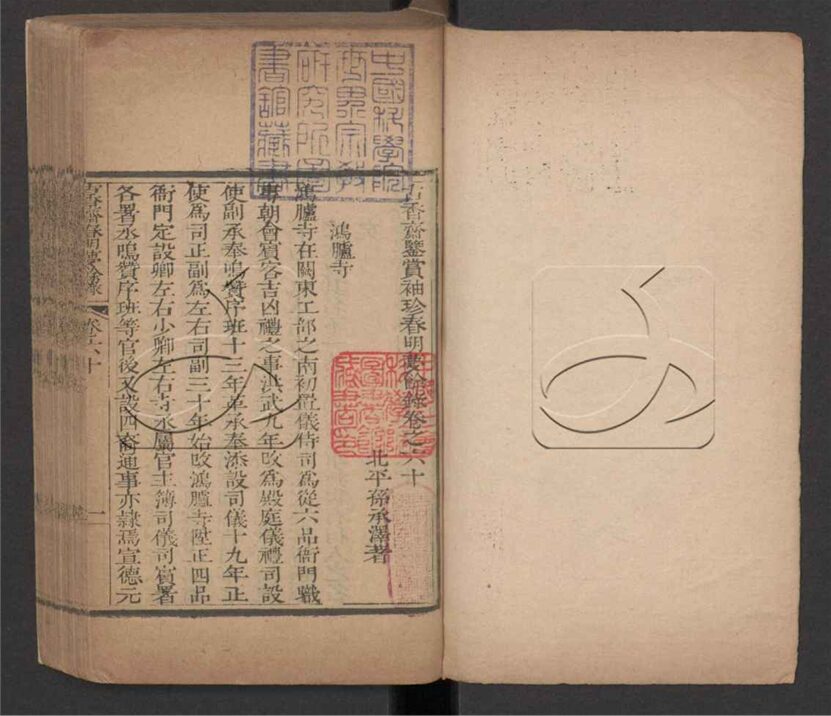 古香齋鑒賞袖珍春明夢餘錄卷之六十
北平孫承澤著
鴻臚寺
鴻臚寺在闕東工部之南初置儀侍司爲從六品衙門職
專朝會賓客吉凶禮之事洪武九年改爲殿庭儀禮司設
使副承奉鳴贊序班十三年革承奉添設司儀十九年正
使爲司正副爲左右司副三十年始改鴻臚寺陞正四品
衙門定設卿左右少卿左右寺丞屬官主簿司儀司賓署
各署丞鳴贊序班等官後又設四裔通事亦隸焉宣德元
古香齋春明夢餘錄
卷六十
一
中國科學院
世界宗教
研究所圖
書館藏書